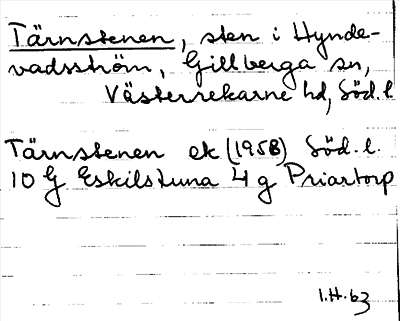 Tärnstenen, sten i Hynde-
vadsström, Gillberga sn,
Västerrekarne hd, Söd.l
Tärnstenen ek (1958) Söd.l.
10 G Eskilstuna 4 g Priartorp
I.H.63